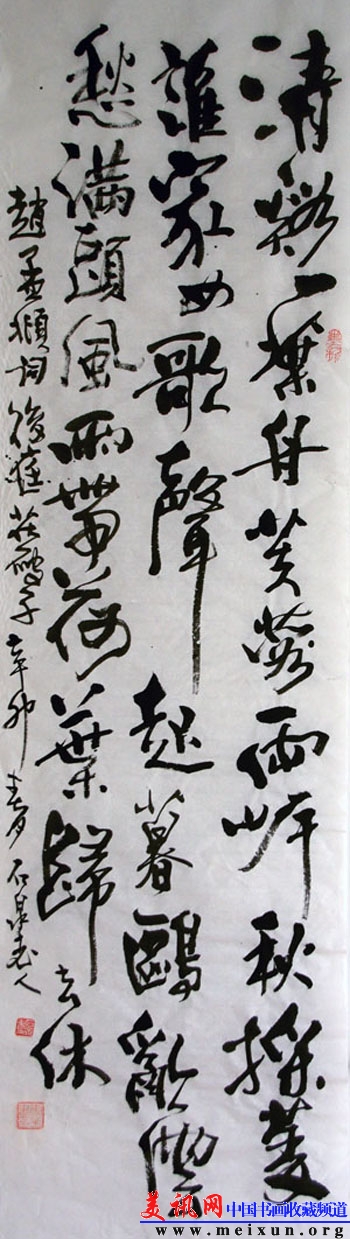 清谿一葉舟芙蓉兩岸秋採菱
誰家女歌聲起暮鷗亂雲
愁滿頭風雨帶荷葉歸去休
趙孟頫詞後庭花破子辛卯春月石老人
美讯网 中国书画收藏频道
www.meixun.org